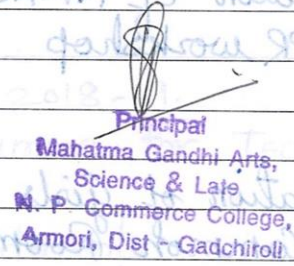 R. workshop
Principal
Mahatma Gandhi Arts,
Science & Late
N. P. Commerce College,
Armori, Dist - Gadchiroli